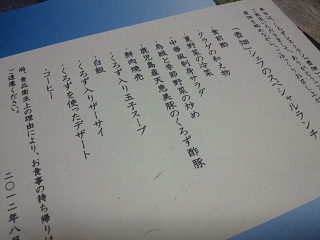 「壺畑」シェフのスペシャルランチ
・食前酢
・クラゲの和え物
・夏野菜の冷菜
・中華風刺身サラダ
・鳥賊と季節野菜の炒め
・鹿児島産天恵美豚のくろず酢豚
・鮮肉焼売
・くろず入り玉子スープ
・白飯
・くろず入りザーサイ
・くろずを使ったデザート
・コーヒー
尚、食品衛生上の理由により、お食事の持ち帰りは
ご遠慮ください。
二〇一二年八月